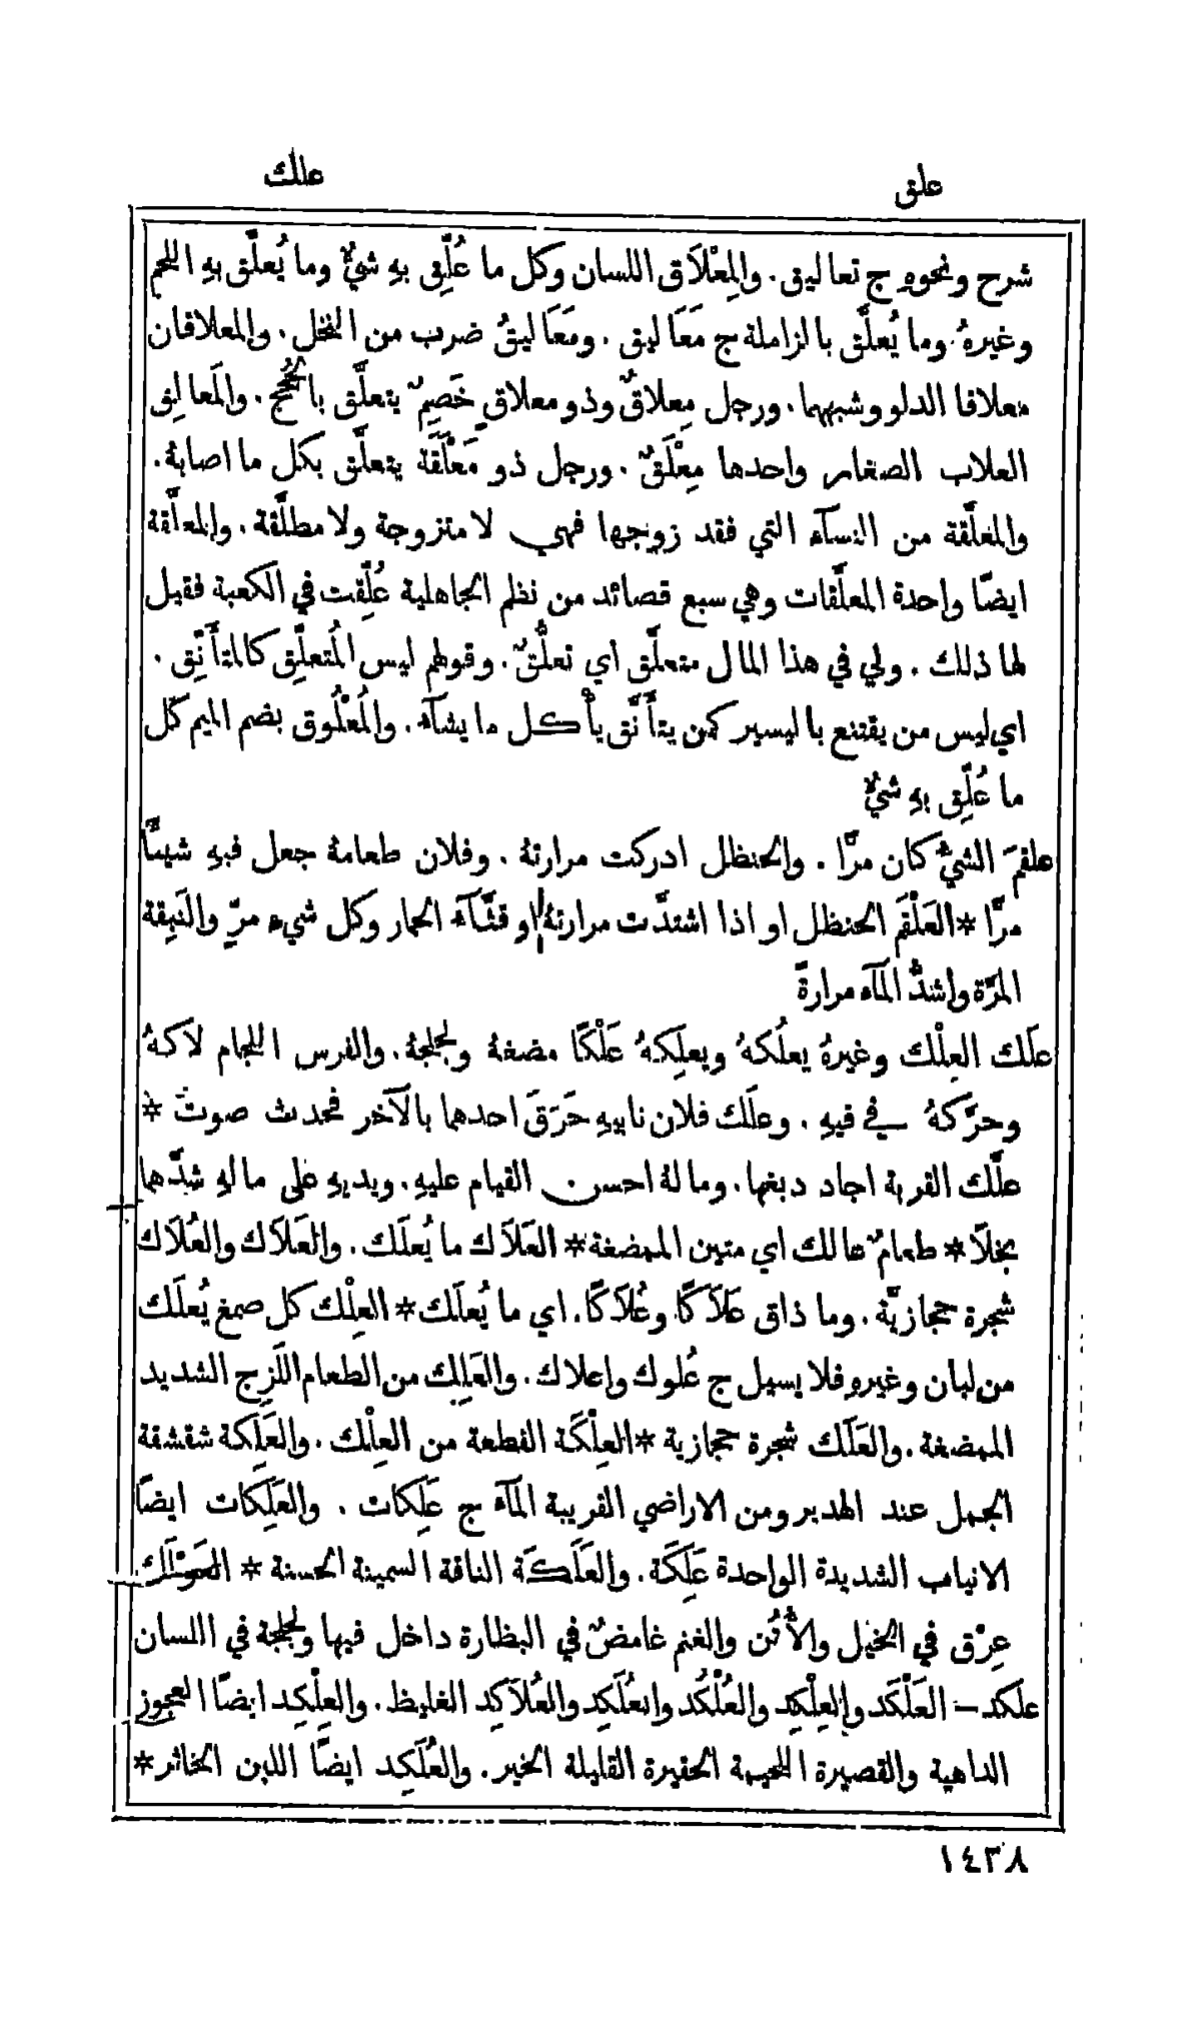 علق
علك
شرح ونحوهِ ج تعاليق. والمِعْلَاق اللسان وكل ما عُلِّق بهِ شيءٌ وما يُعلَّق بهِ اللحم
وغيرهُ. وما يُعلَّق بالزاملة ج مَعَاليق. ومَعَاليقُ ضرب من النخل. والمعلاقان
معلاقا الدلو وشبهها. ورجل مِعلاقٌ وذو معلاقٍ خَصِمٌ يتعلَّق بالحُجَج. والمَعالِق
العلاب الصغار واحدها مِعْلَقٌ. ورجل ذو مَعْلَقَة يتعلَّق بكل ما اصابهُ.
والمعلَّقة من النسآء التي فقد زوجها فهي لا متزوجة ولا مطلَّقة. والمعلَّقة
ايضًا واحدة المعلَّقات وهي سبع قصائد من نظم الجاهلية عُلِّقت في الكعبة فقيل
لها ذلك. ولي في هذا المال متعلَّق اي تعلُّقٌ. وقولهم ليس المُتعلِّق كالمتأَنِّق.
اي ليس من يقتنع باليسير كمن يتأَنَّق يأْكل ما يشآء. والمُعْلُوق بضم الميم كل
ما عُلِّق بهِ شيءٌ
علقمَ الشيءُ كان مرًّا. والحنظل ادركت مرارتهُ. وفلان طعامهُ جعل فيهِ شيئًا
مرًّا * العَلْقَم الحنظل او اذا اشتدَّت مرارتهُ او قثَّآء الحمار وكل شيء مرّ والنَبِقة
المرَّة واشدُّ المآء مرارةً
علَك العِلْك وغيرهُ يعلُكهُ ويعلِكهُ عَلْكًا مضغهُ ولجلجهُ. والفرس اللجام لاكهُ
وحرَّكهُ في فيهِ. وعلَك فلان نابيهِ حَرَقَ احدهما بالآخر فحدث صوت *
علَّك القربة اجاد دبغها. ومالهُ احسن القيام عليهِ. ويديهِ على مالهِ شدَّهما
بخلًا * طعامٌ عالك اي متين الممضغة * العَلَاك ما يُعلَك. والعَلَاك والعُلَاك
شجرة حجازيَّة. وما ذاق عَلَاكًا وعُلَاكًا. اي ما يُعلَك * العِلْك كل صمغ يُعلَك
من لبان وغيرهِ فلا يسيل ج عُلوك واعلاك. والعَلِك من الطعام اللَزِج الشديد
الممضغة. والعَلَك شجرة حجازية * العِلْكَة القطعة من العِلْك. والعَلِكة شقشقة
الجمل عند الهدير ومن الاراضي القريبة المآء ج عَلِكات. والعَلِكات ايضًا
الانياب الشديدة الواحدة عَلِكَة. والعَلَكَة الناقة السمينة الحسنة * العَوْلَك
عِرْق في الخيل والأُتُن والغنم غامضٌ في البظارة داخل فيها ولجلجة في اللسان
علكد – العَلْكَد والعِلْكِد والعُلْكُد والعُلَكِد والعُلَاكِد الغليظ. والعِلْكِد ايضًا العجوز
الداهية والقصيرة اللحيمة الحقيرة القليلة الخير. والعُلَكِد ايضًا اللبن الخاثر *
١٤٣٨